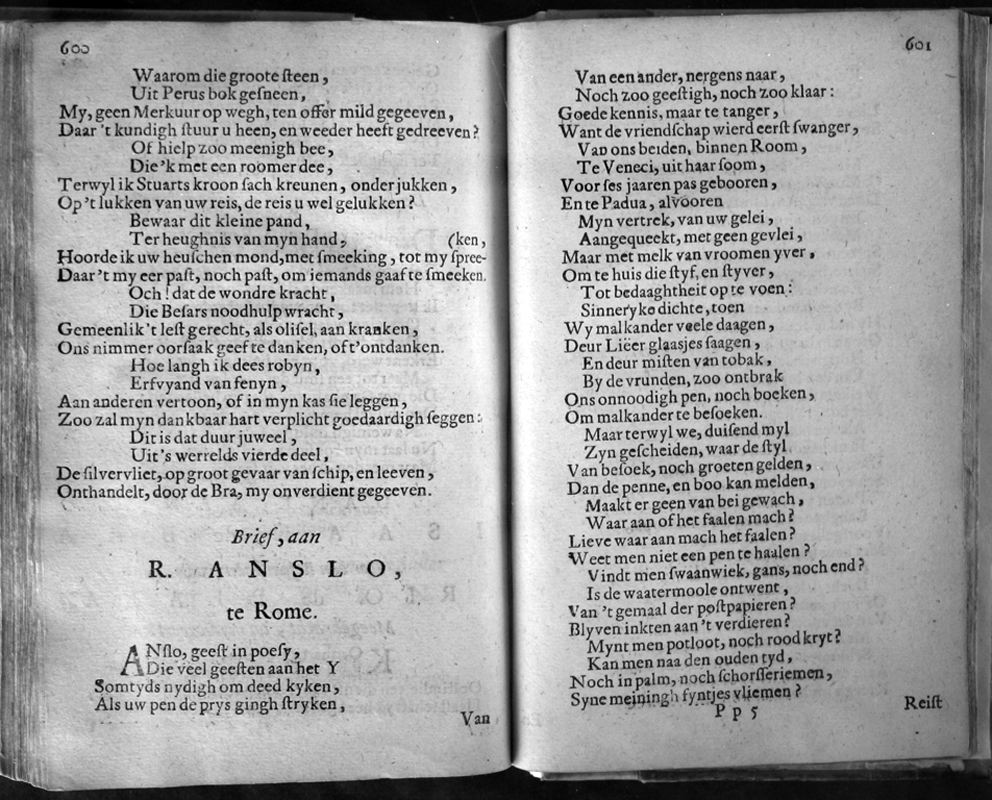 600
Waarom die groote ſteen,
Uit Perus bok geſneen,
My, geen Merkuur op wegh, ten offer mild gegeeven,
Daar 't kundigh ſtuur u heen, en weeder heeft gedreeven?
Of hielp zoo meenigh bee,
Die'k met een roomer dee,
Terwyl ik Stuarts kroon ſach kreunen, onderjukken,
Op 't lukken van uw reis, de reis u wel gelukken?
Bewaar dit kleine pand,
Ter heughnis van myn hand, (ken,
Hoorde ik uw heuſchen mond, met ſmeeking, tot my ſpree-
Daar 't my eer paſt, noch paſt, om iemands gaaf te ſmeeken.
Och! dat de wondre kracht,
Die Beſars noodhulp wracht,
Gemeenlik 't leſt gerecht, als oliſel, aan kranken,
Ons nimmer oorſaak geef te danken, of t'ontdanken.
Hoe langh ik dees robyn,
Erfvyand van fenyn,
Aan anderen vertoon, of in myn kas ſie leggen,
Zoo zal myn dankbaar hart verplicht goedaardigh ſeggen:
Dit is dat duur juweel,
Uit 's werrelds vierde deel,
De ſilvervliet, op groot gevaar van ſchip, en leeven,
Onthandelt, door de Bra, my onverdient gegeeven.
Brief, aan
R. ANSLO,
te Rome.
ANſlo, geeſt in poeſy,
Die veel geeſten aan het Y
Somtyds nydigh om deed kyken,
Als uw pen de prys gingh ſtryken,
Van
601
Van een ander, nergens naar,
Noch zoo geeſtigh, noch zoo klaar:
Goede kennis, maar te tanger,
Want de vriendſchap wierd eerſt ſwanger,
Van ons beiden, binnen Room,
Te Veneci, uit haar ſoom,
Voor ſes jaaren pas gebooren,
En te Padua, alvooren
Myn vertrek, van uw gelei,
Aangequeekt, met geen gevlei,
Maar met melk van vroomen yver,
Om te huis die ſtyf, en ſtyver,
Tot bedaaghtheit op te voen:
Sinneryke dichte, toen
Wy malkander veele daagen,
Deur Liëer glaasjes ſaagen,
En deur miſten van tobak,
By de vrunden, zoo ontbrak
Ons onnoodigh pen, noch boeken,
Om malkander te beſoeken.
Maar terwyl we, duiſend myl
Zyn geſcheiden, waar de ſtyl
Van beſoek, noch groeten gelden,
Dan de penne, en boo kan melden,
Maakt er geen van bei gewach,
Waar aan of het faalen mach?
Lieve waar aan mach het faalen?
Weet men niet een pen te haalen?
Vindt men ſwaanwiek, gans, noch end?
Is de waatermoole ontwent,
Van 't gemaal der poſtpapieren?
Blyven inkten aan 't verdieren?
Mynt men potloot, noch rood kryt?
Kan men naa den ouden tyd,
Noch in palm, noch ſchorſſeriemen,
Syne meiningh fyntjes vliemen?
Pp 5
Reiſt